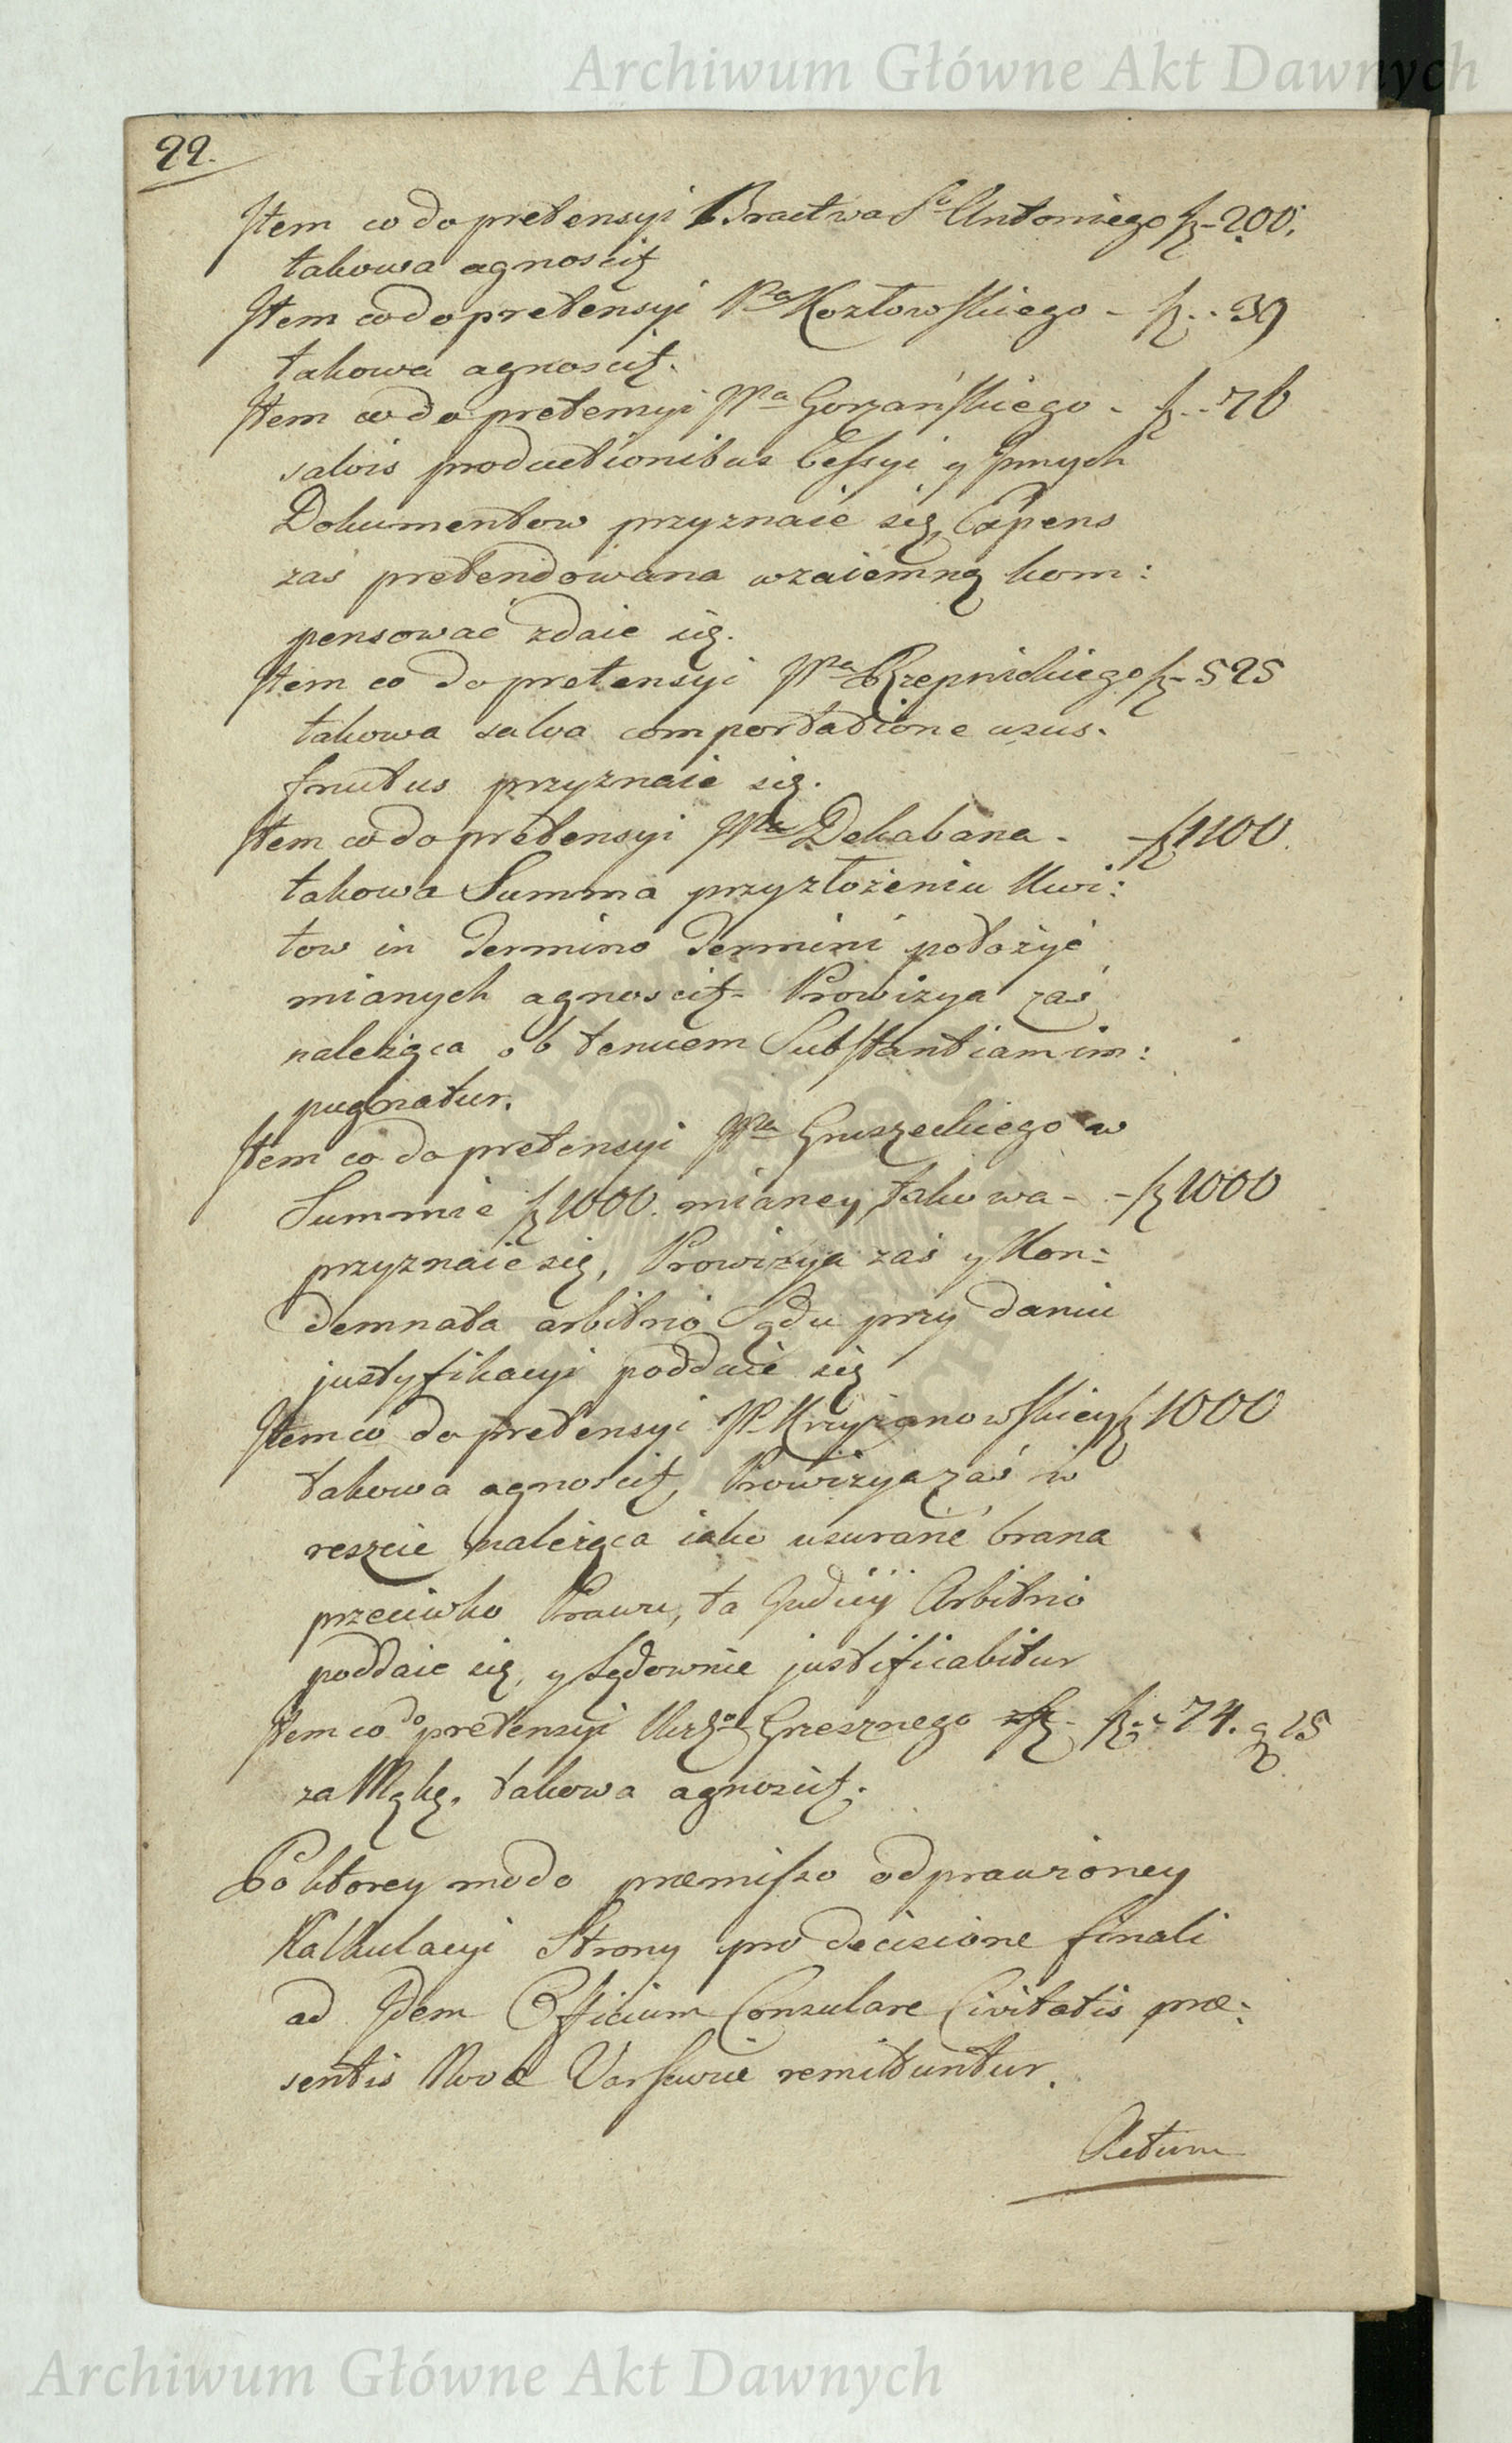 Archiwum Główne Akt Dawnych
22.
Jtem co do pretensyi Bractwa Sgo Antoniego fl 200.
takowa agnoscit
Jtem co do pretensyi Kozłowskiego - fl - 39
takowa agnoscit.
Jtem co do pretensyi Wa Gorzańskiego - fl - 76
salvis productionibus Cessyi y Jnnych
Dokumentow przyznaie się, Expens
zaś pretendowana wzaiemną kom:
pensować zdaie się.
Jtem co do pretensyi Wa Rzepnickiego fl - 525
takowa salva comportatione usus-
fructus przyznaie się.
Jtem co do pretensyi Wa Dekabana - fl 1100.
takowa Summa przy złożeniu Kwi:
tow in Termino Termini położyć
mianych agnoscit - Prowizya zaś
należąca ob tenuem Substantiam im:
pugnatur.
Jtem co do pretensyi Wa Gruszeckiego w
Summie fl 1000. mianey takowa - fl 1000
przyznaie się, Prowizya zaś y Kon-
demnata arbitrio Sądu przy daniu
justyfikacyi poddaie się
Jtem co do pretensyi W Krzyżanowskiey fl 1000
takowa agnoscit, Prowizya zaś w
reszcie należąca iako usuranie brana
przeciwko Prawu, ta Judicij Arbitrio
poddaie się, y sądownie justificabitur
Jtem co do pretensyi Grzesznego fl - 74. g 15
za Mąkę, takowa agnoscit.
Po ktorey modo præmisso odprawioney
Kalkulacyi Strony pro decisione finali
ad Jdem Officium Consulare Civitatis præ-
sentis Novæ Varsaviæ remittuntur.
Actum
Archiwum Główne Akt Dawnych